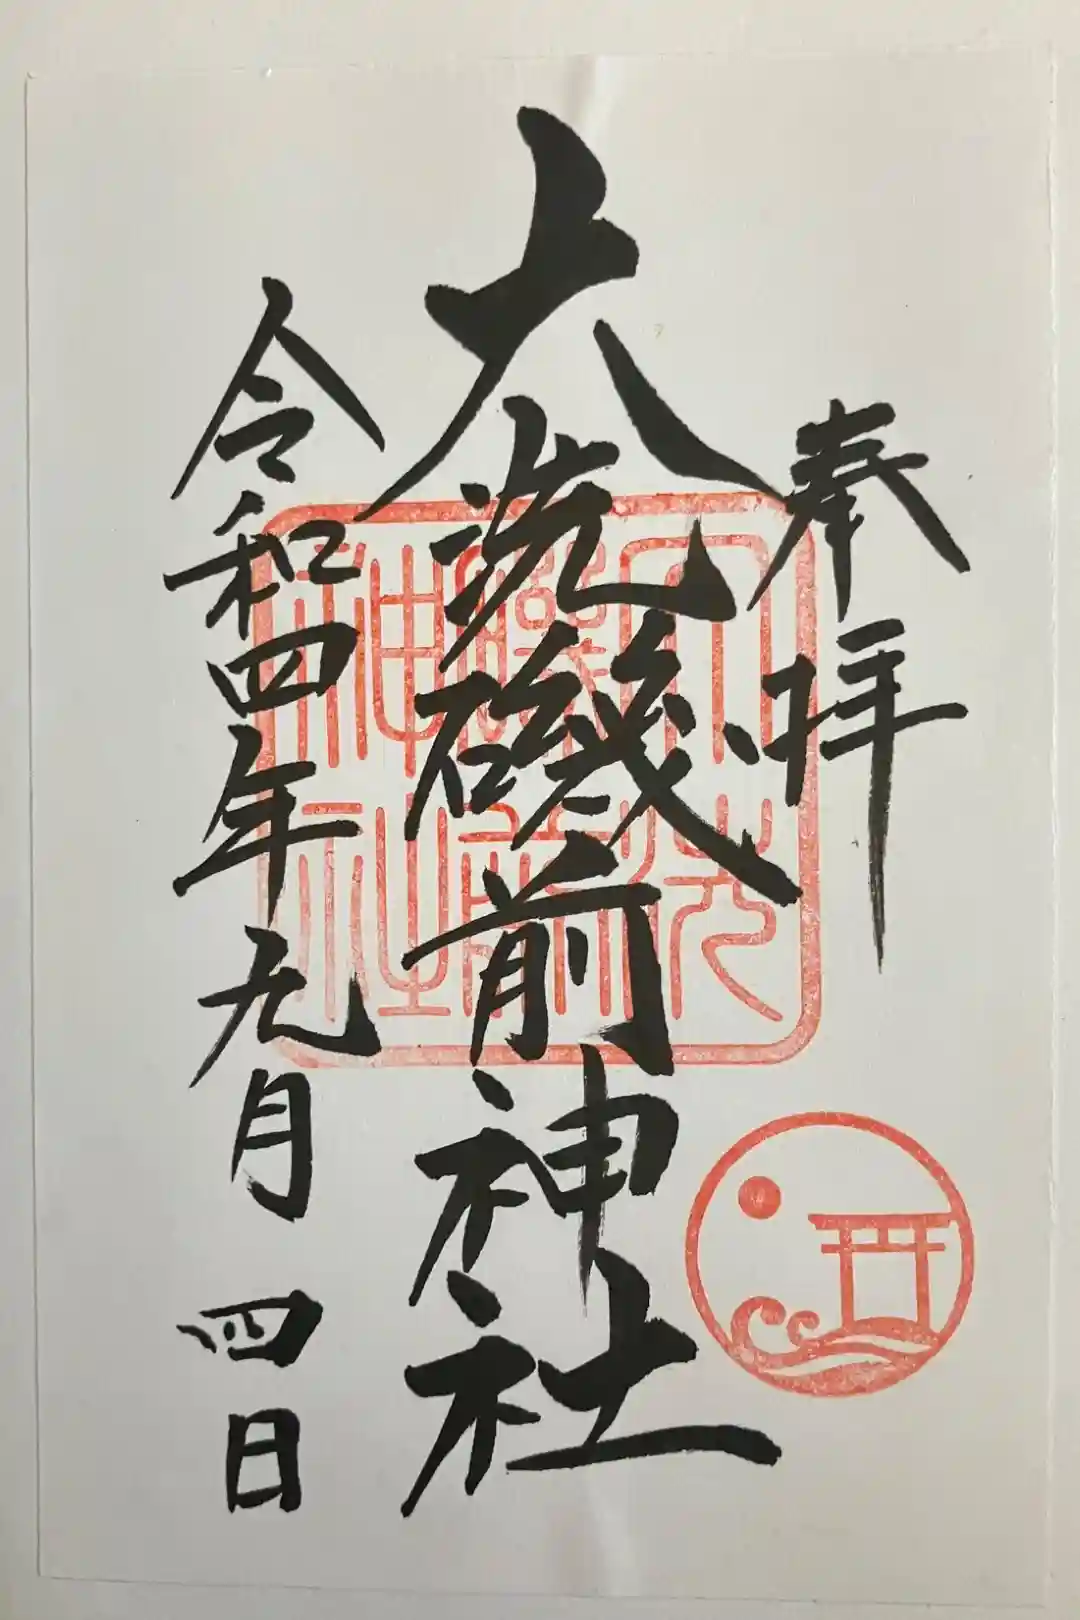 奉拝
大洗磯前神社
令和四年九月四日
大洗
磯前
神社